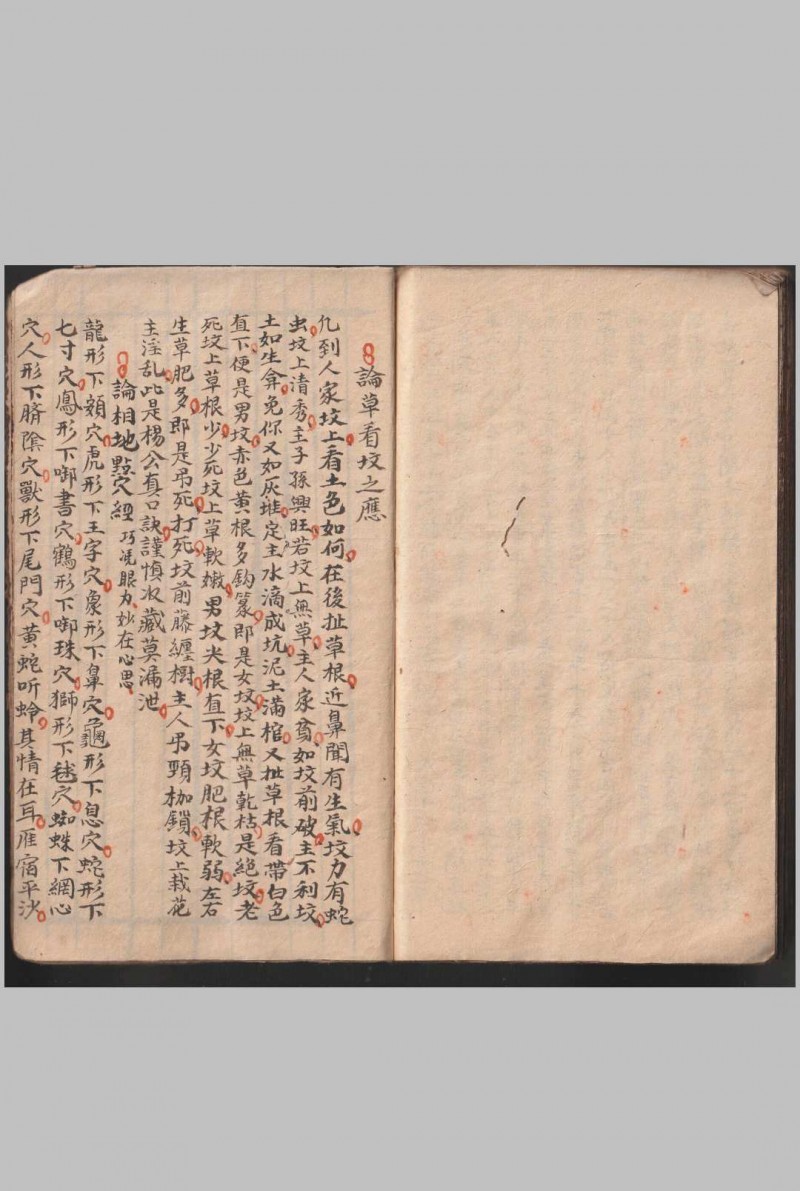 論草看坟之應
凢到人家坟上看土色如何在後扯草根近鼻聞有生氣坟力有蛇
虫坟上清秀主子孫興旺若坟上無草主人家貧如坟前破主不利坟
土如生弇免你又如灰堆定主水滴成坑泥土滿棺又扯草根看帶白色
直下便是男坟赤色黄根多鈎篆即是女坟坟上無草乾枯是絕坟老
死坟上草根少少死坟上草軟嫩男坟尖根直下女坟肥根軟弱左右
生草肥多即是吊死打死坟前藤纏樹主人吊頸枷鎖坟上栽花
主淫乱此是楊公真口訣謹慎收藏莫漏泄
論相地點穴經 巧凴眼力妙在心思
龍形下頦穴虎形下王字穴象形下鼻穴龜形下息穴蛇形下
七寸穴鳳形下啣書穴鶴形下啣珠穴獅形下毬穴蜘蛛下網心
穴人形下臍陰穴獸形下尾門穴黄蛇听蛉其情在耳雁宿平沙